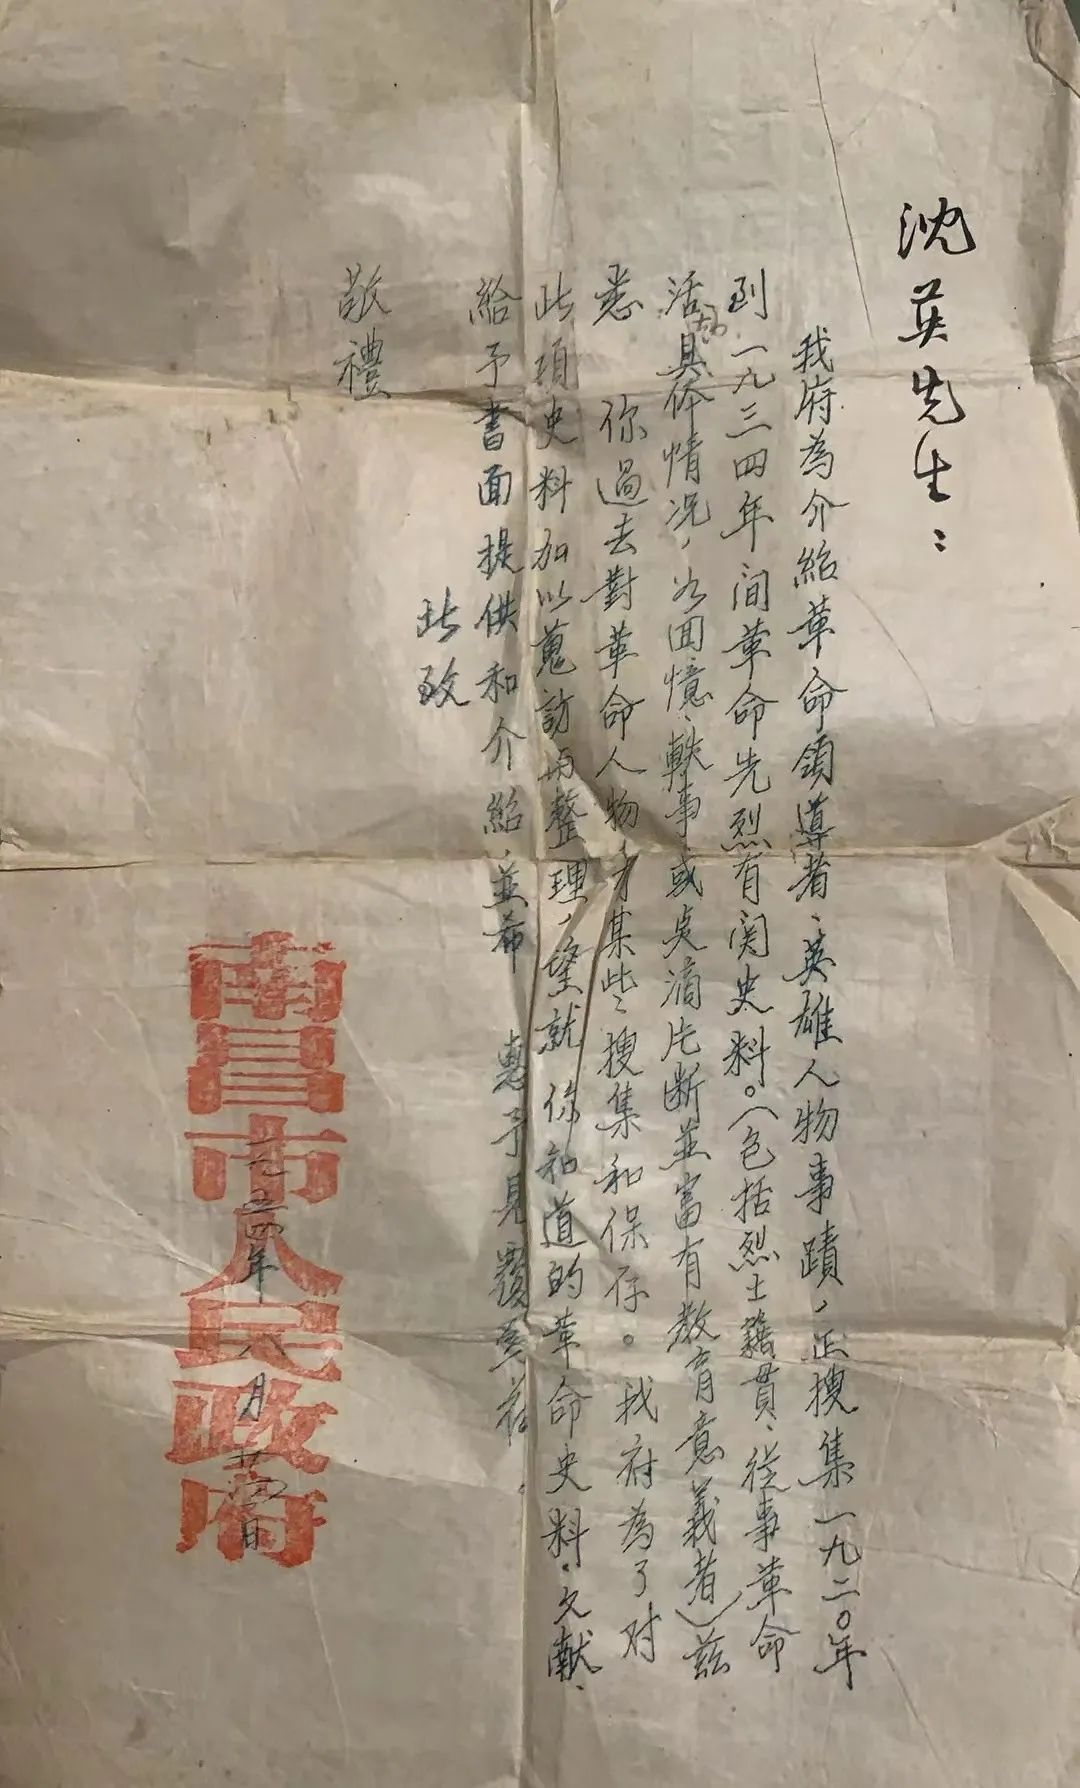 沈英先生：
我府為介紹革命領導者、英雄人物事蹟，正搜集一九二〇年
到一九三四年间革命先烈有関史料。（包括烈士籍貫、從事革命
活动具体情况，如回憶、軼事或点滴片断並富有教育意義者）兹
悉 你過去對革命人物才某些搜集和保存。我府為了对
此項史料加以蒐訪与整理，望就 你知道的革命史料、文献、
給予書面提供和介紹，並希 惠予見覆為荷。
此致
敬禮
南昌市人民政府
一九五四年八月 日